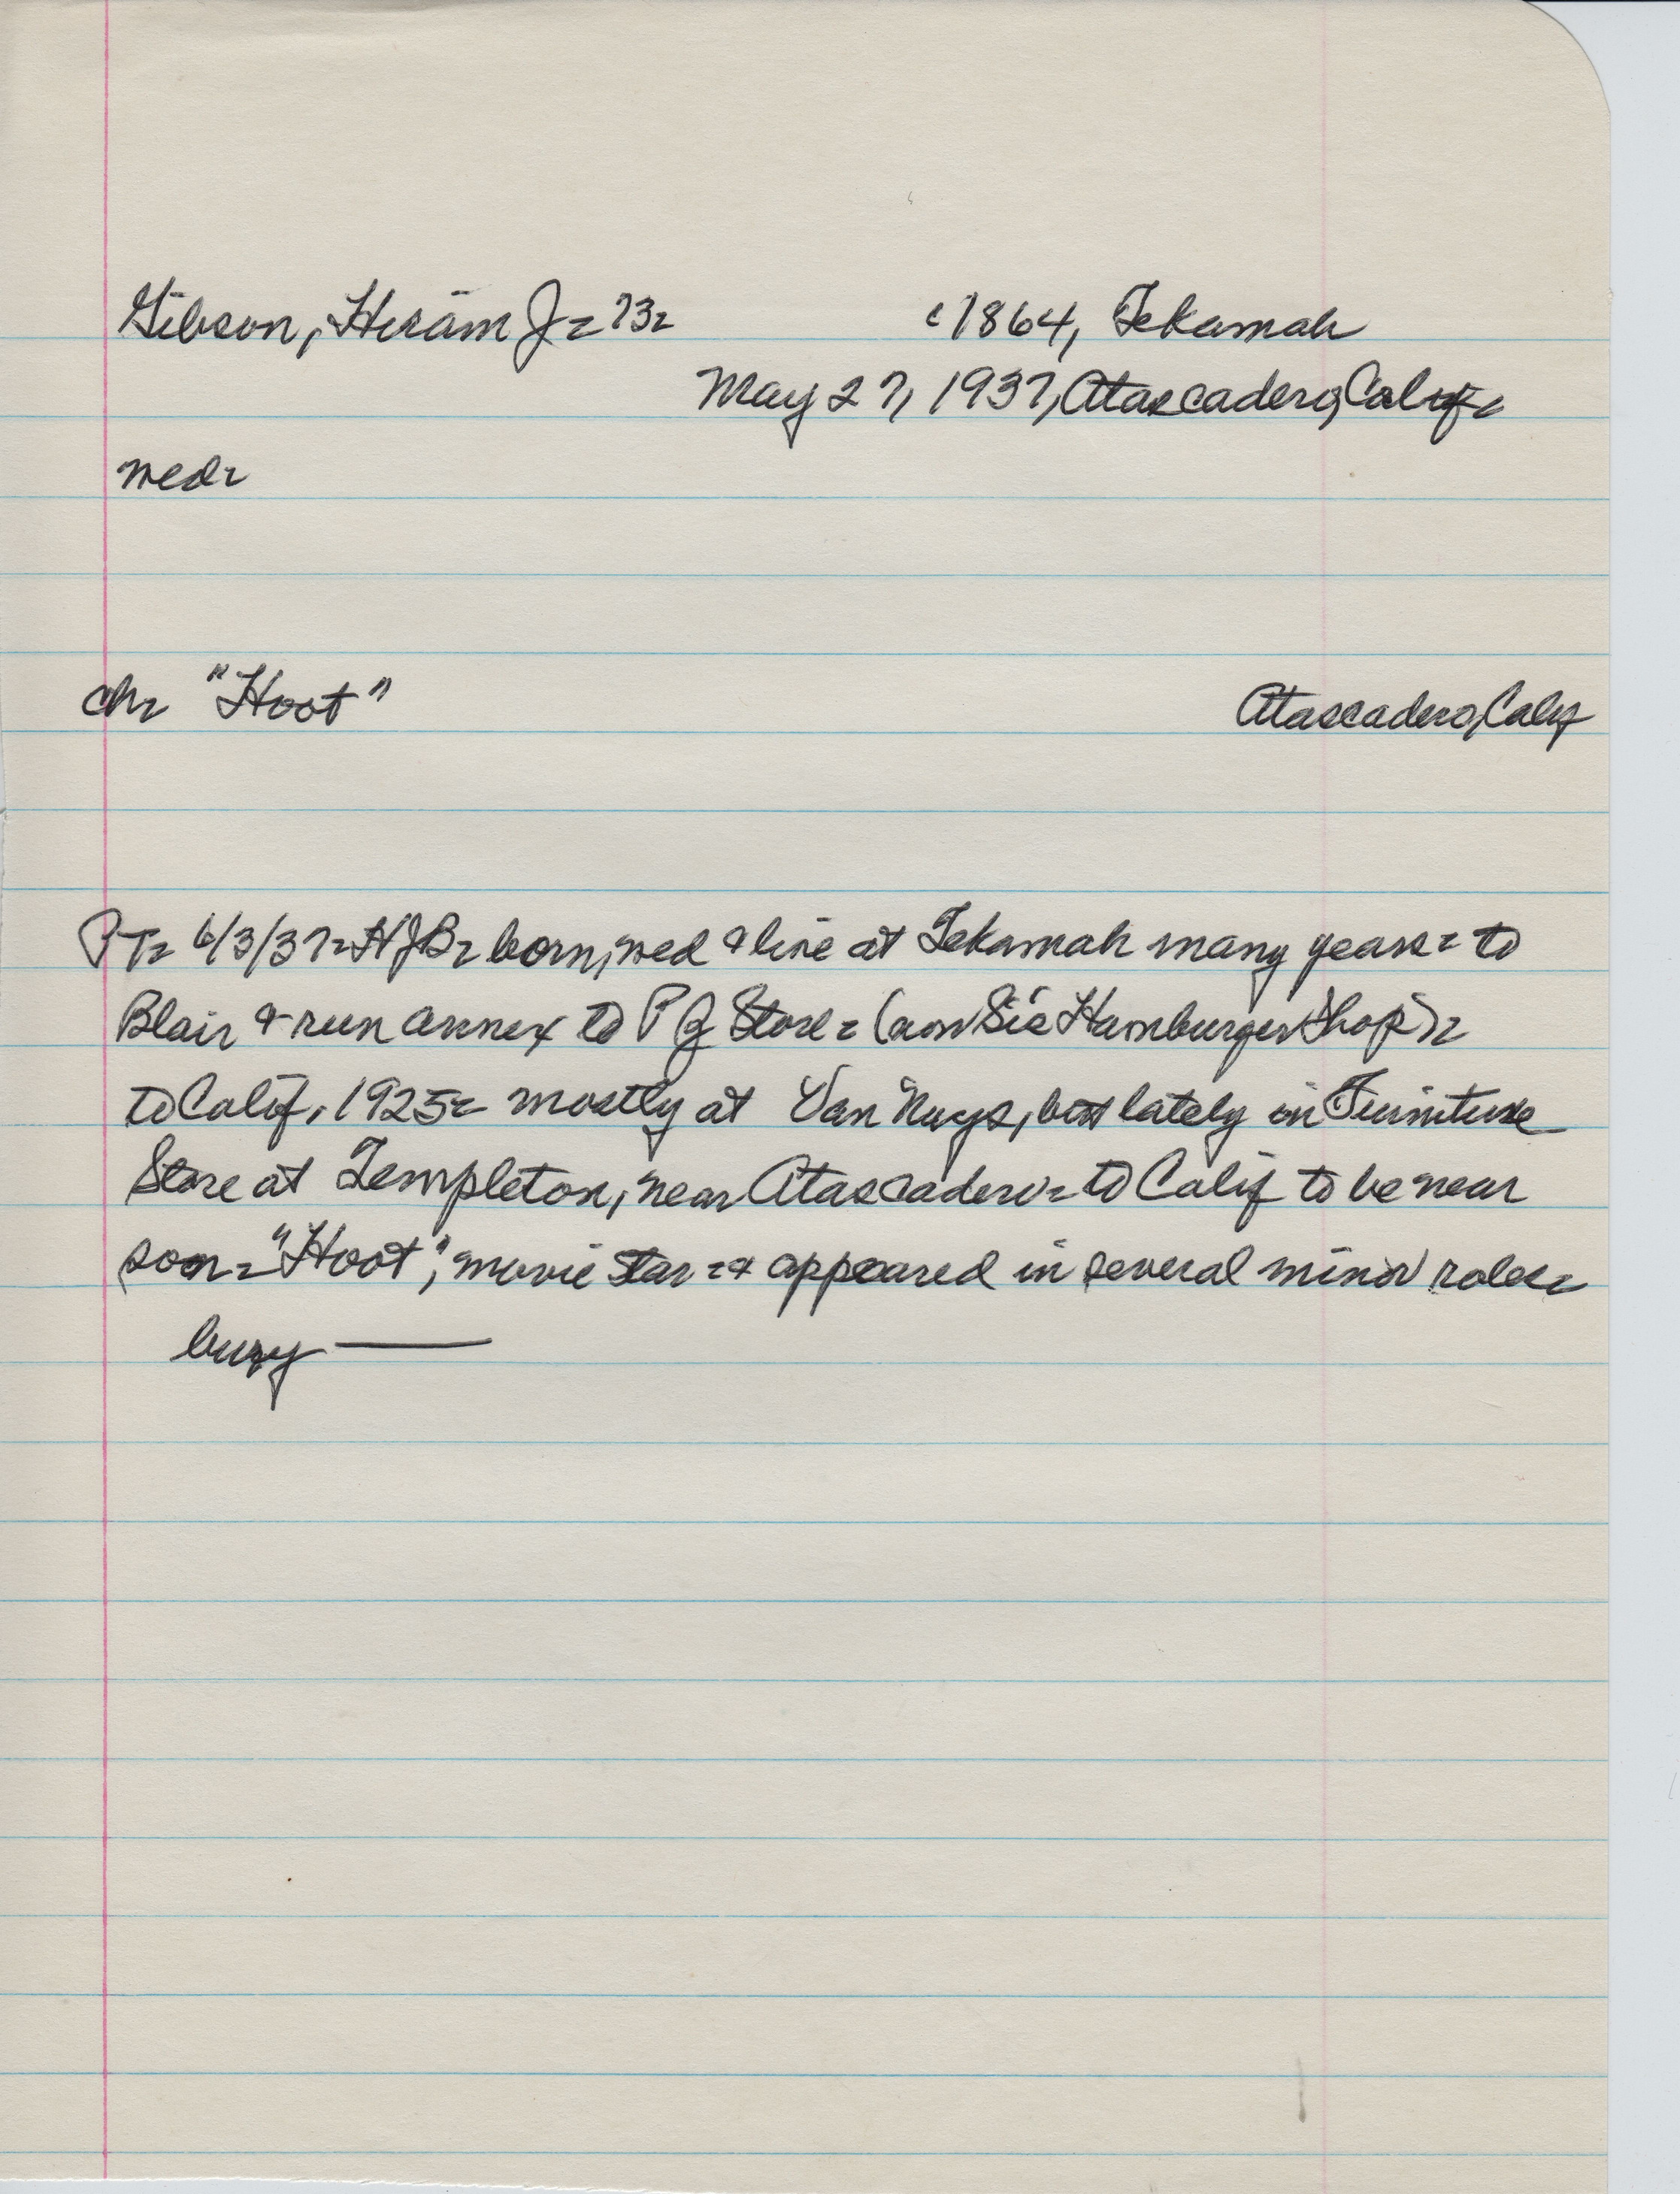 Gibson, Hiram J - 73 - c 1864, Tekamah
May 27, 1937, Atascadero, Calif -
wed -
ch - "Hoot" Atascadero, Calif
PT - 6/3/37 - HJG - born, wed & live at Tekamah many years - to
Blair & run annex to P G Store - (now Sis Hamburger Shop) -
to Calif, 1925 - mostly at Van Nuys, but lately in Furniture
Store at Templeton, near Atascadero - to Calif to be near
son - "Hoot", movie star - & appeared in several minor roles -
bury —